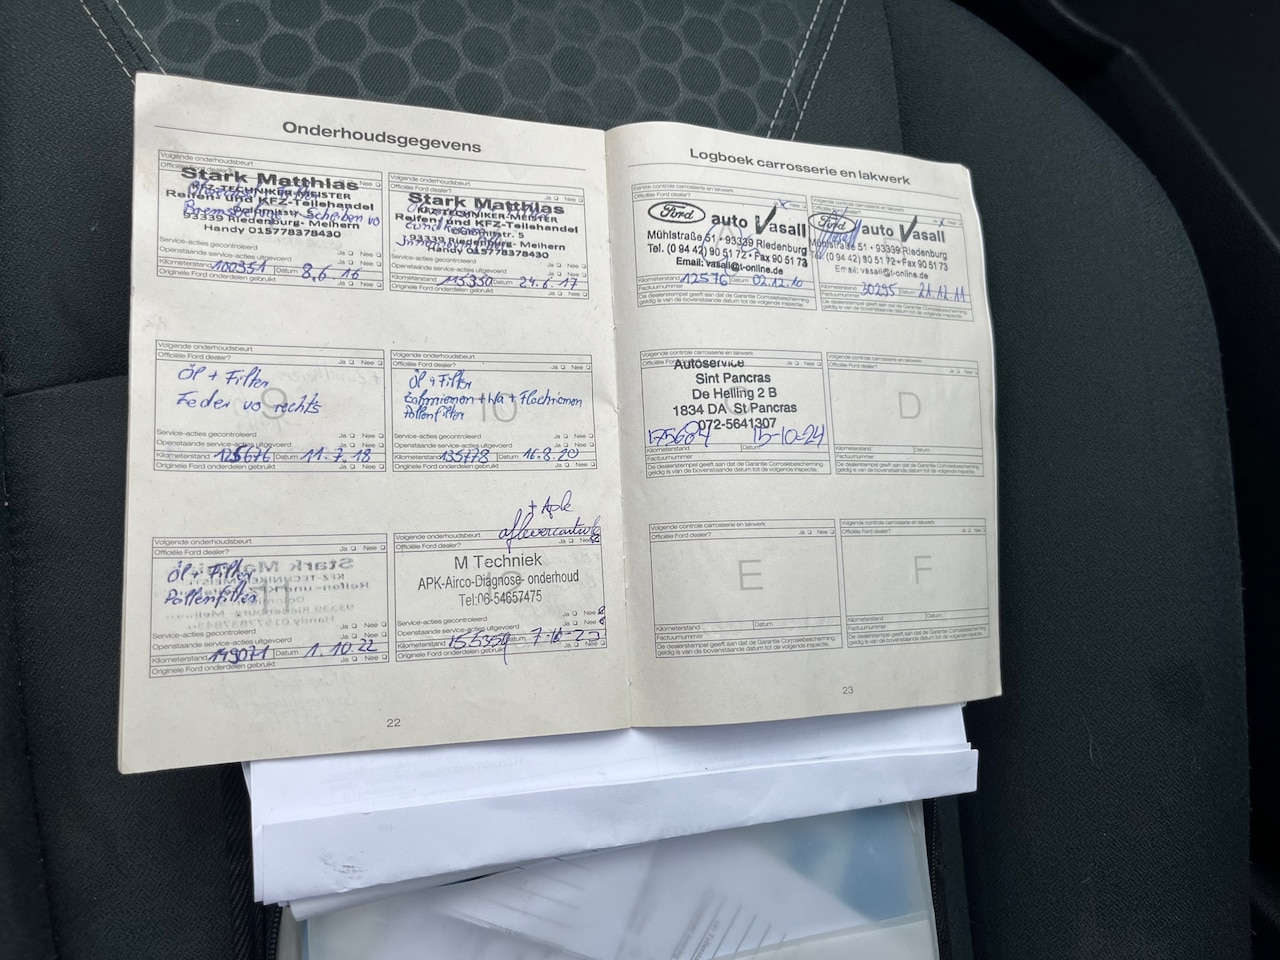 Onderhoudsgegevens
Volgende onderhoudsbeurt
Officiële Ford dealer? Ja Nee
Stark Matthias
KFZ-TECHNIKER-MEISTER
Reifen- und KFZ-Teilehandel
93339 Riedenburg- Meihern
Handy 015778378430
Service-acties gecontroleerd
Openstaande service-acties uitgevoerd
Kilometerstand 100351 Datum 8,6,16
Originele Ford onderdelen gebruikt
Volgende onderhoudsbeurt
Officiële Ford dealer? Ja Nee
Stark Matthias
KFZ-TECHNIKER-MEISTER
Reifen und KFZ-Teilehandel
93339 Riedenburg- Meihern
Handy 015778378430
Service-acties gecontroleerd
Openstaande service-acties uitgevoerd
Kilometerstand Datum 24.6.17
Originele Ford onderdelen gebruikt
Volgende onderhoudsbeurt
Officiële Ford dealer? Ja Nee
Öl + Filter
Feder vo rechts
9
Service-acties gecontroleerd Ja Nee
Openstaande service-acties uitgevoerd Ja Nee
Kilometerstand 125676 Datum 11.7.18
Originele Ford onderdelen gebruikt Ja Nee
Volgende onderhoudsbeurt
Officiële Ford dealer? Ja Nee
Öl + Filter
Zahnriemen + Wa + Flachriemen
Pollenfilter
10
Service-acties gecontroleerd Ja Nee
Openstaande service-acties uitgevoerd Ja Nee
Kilometerstand 135778 Datum 16.8.20
Originele Ford onderdelen gebruikt Ja Nee
Volgende onderhoudsbeurt
Officiële Ford dealer? Ja Nee
Öl + Filter
Pollenfilter
11
Service-acties gecontroleerd Ja Nee
Openstaande service-acties uitgevoerd Ja Nee
Kilometerstand 149071 Datum 1.10.22
Originele Ford onderdelen gebruikt Ja Nee
+ Apk
Volgende onderhoudsbeurt
Officiële Ford dealer? Ja Nee
M Techniek
APK-Airco-Diagnose- onderhoud
Tel:06-54657475
Service-acties gecontroleerd Ja Nee
Openstaande service-acties uitgevoerd Ja Nee
Kilometerstand 155350 Datum
Originele Ford onderdelen gebruikt Ja Nee
22
Logboek carrosserie en lakwerk
Eerste controle carrosserie en lakwerk
Officiële Ford dealer? Ja Nee
Ford auto Vasall
Mühlstraße 51 • 93339 Riedenburg
Tel. (0 94 42) 90 51 72 • Fax 90 51 73
Email: vasall@t-online.de
Kilometerstand 12576 Datum 02.12.10
Factuurnummer
De dealerstempel geeft aan dat de Garantie Corrosiebescherming
geldig is van de bovenstaande datum tot de volgende inspectie.
Volgende controle carrosserie en lakwerk
Officiële Ford dealer? Ja Nee
Ford auto Vasall
Mühlstraße 51 • 93339 Riedenburg
Tel. (0 94 42) 90 51 72 • Fax 90 51 73
Email: vasall@t-online.de
Kilometerstand 30295 Datum 21.12.11
Factuurnummer
De dealerstempel geeft aan dat de Garantie Corrosiebescherming
geldig is van de bovenstaande datum tot de volgende inspectie.
Volgende controle carrosserie en lakwerk
Officiële Ford dealer? Ja Nee
Autoservice
Sint Pancras
De Helling 2 B
1834 DA St Pancras
072-5641307
175684 15-10-24
Kilometerstand Datum
Factuurnummer
De dealerstempel geeft aan dat de Garantie Corrosiebescherming
geldig is van de bovenstaande datum tot de volgende inspectie.
Volgende controle carrosserie en lakwerk
Officiële Ford dealer? Ja Nee
D
Kilometerstand Datum
Factuurnummer
De dealerstempel geeft aan dat de Garantie Corrosiebescherming
geldig is van de bovenstaande datum tot de volgende inspectie.
Volgende controle carrosserie en lakwerk
Officiële Ford dealer? Ja Nee
E
Kilometerstand Datum
Factuurnummer
De dealerstempel geeft aan dat de Garantie Corrosiebescherming
geldig is van de bovenstaande datum tot de volgende inspectie.
Volgende controle carrosserie en lakwerk
Officiële Ford dealer? Ja Nee
F
Kilometerstand Datum
Factuurnummer
De dealerstempel geeft aan dat de Garantie Corrosiebescherming
geldig is van de bovenstaande datum tot de volgende inspectie.
23